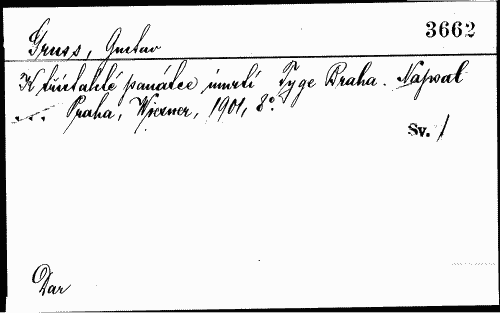 3662
Gruss, Gustav
K třístaleté památce úmrtí Tyge Braha. Napsal
... Praha, Wiesner, 1901, 8°.
Sv. 1
Dar